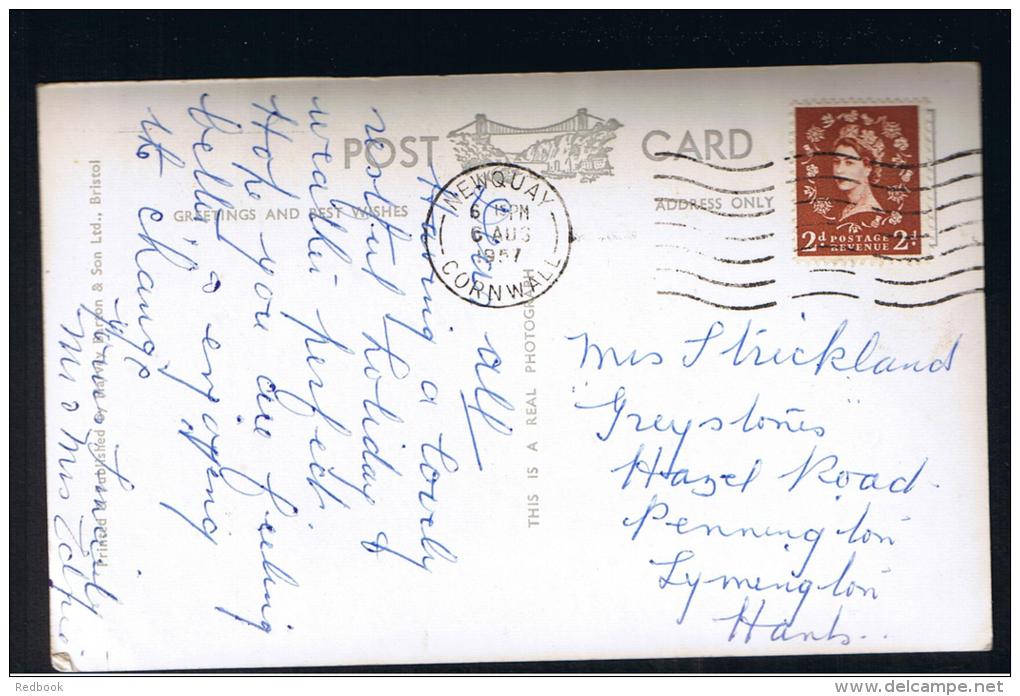 POST CARD
GREETINGS AND BEST WISHES
ADDRESS ONLY
NEWQUAY
6 15 PM
6 AUG
1957
CORNWALL
2d POSTAGE 2d
REVENUE
Dear all
Having a lovely
restful holiday &
weather perfect.
Hope you are feeling
better & enjoying
the change
Yours sincerely
Mr & Mrs
THIS IS A REAL PHOTOGRAPH
Mrs Strickland
"Greystones"
Hazel Road.
Pennington
Lymington
Hants..
Printed & Published by Harvey Barton & Son Ltd., Bristol
Redbook
delcampe.net